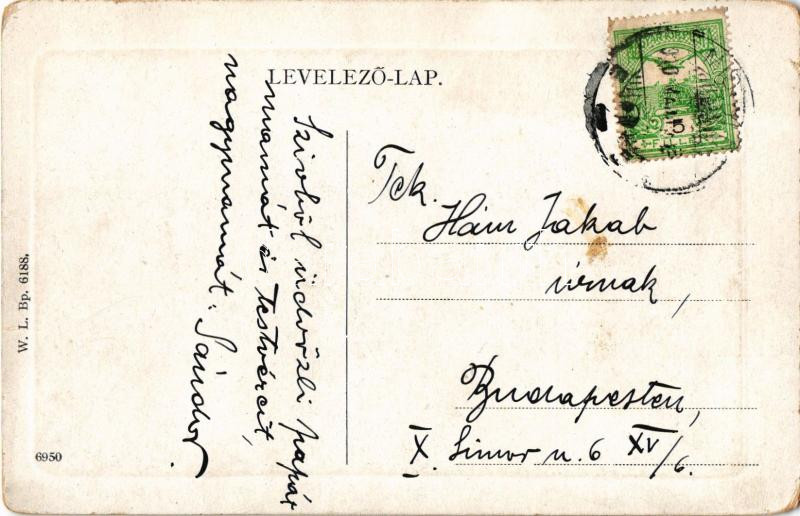 LEVELEZŐ-LAP.
Szivből üdvözli papát
mamát és testvéreit,
nagymamát. Sándor.
Tek.
Hám Jakab
úrnak,
Budapesten,
X. Simor u. 6 XV/6.
W. L. Bp. 6188.
6950
5